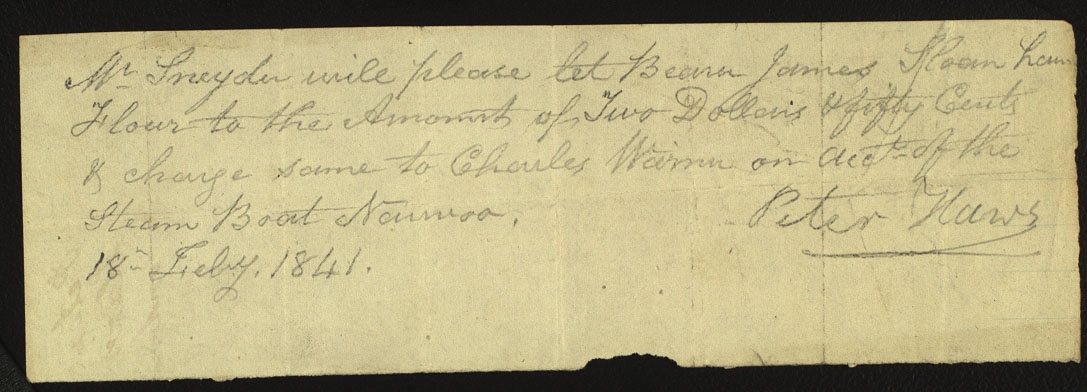 Mr. Sneyder will please let Bearer James Sloan have
Flour to the Amount of Two Dollars & fifty Cents
& charge same to Charles Warner on acct. of the
Steam Boat Nauvoo.
Peter Haws
18th Feby. 1841.